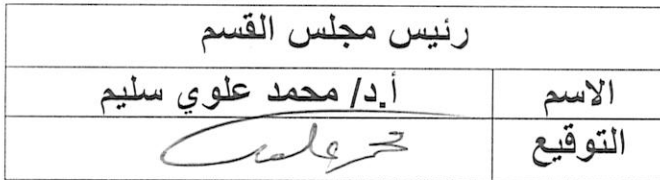 رئيس مجلس القسم
الاسم أ.د/ محمد علوي سليم
التوقيع